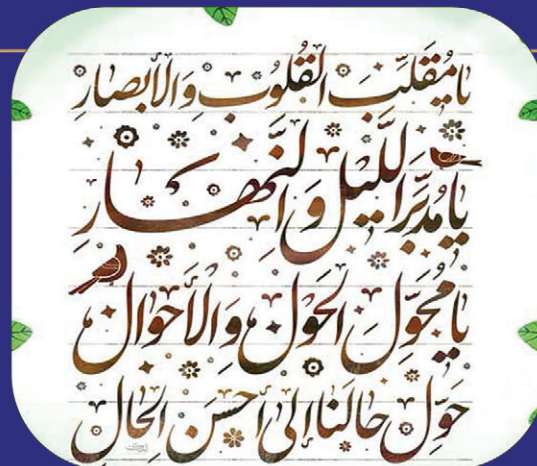 یا مُقَلِّبَ القُلُوبِ وَ الْأَبْصارِ
یا مُدَبِّرَ اللَّیْلِ وَ النَّهارِ
یا مُحَوِّلَ الحَوْلِ وَ الْأَحْوالِ
حَوِّل حالَنا إِلیٰ أَحْسَنِ الحالِ